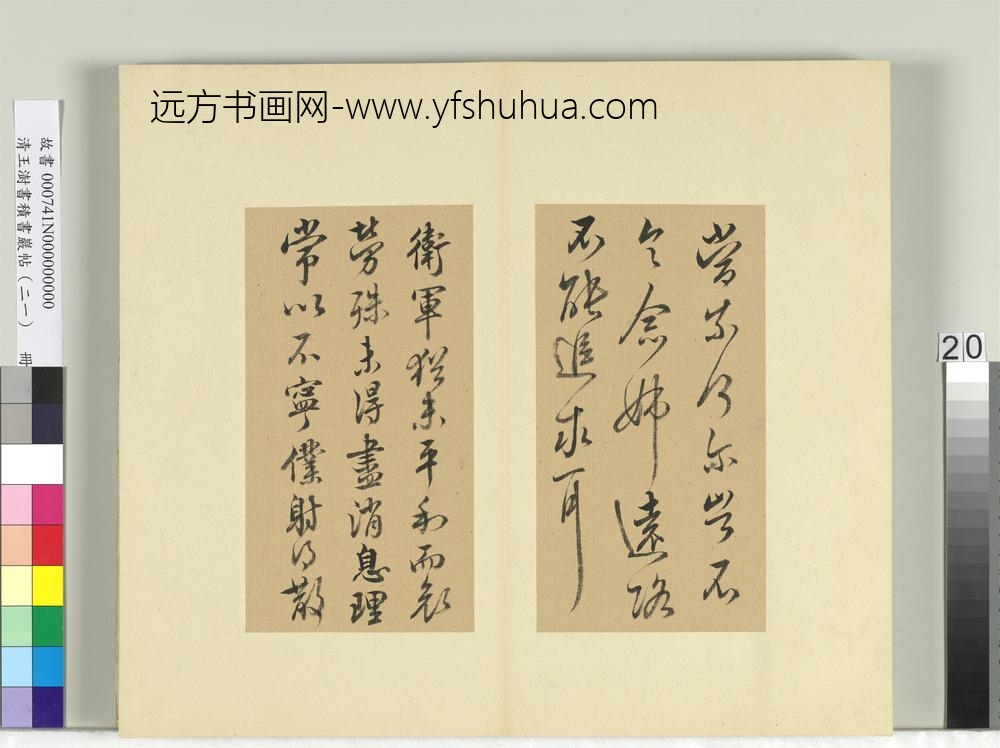 远方书画网-www.yfshuhua.com
故書 000741N000000000
清王澍書積書巖帖(二一) 冊
20
當力何尔豈不
念姊遠路
不能追求耳
衛軍猶未平和而哀
勞殊未得盡消息理
常以不寧僕射得散